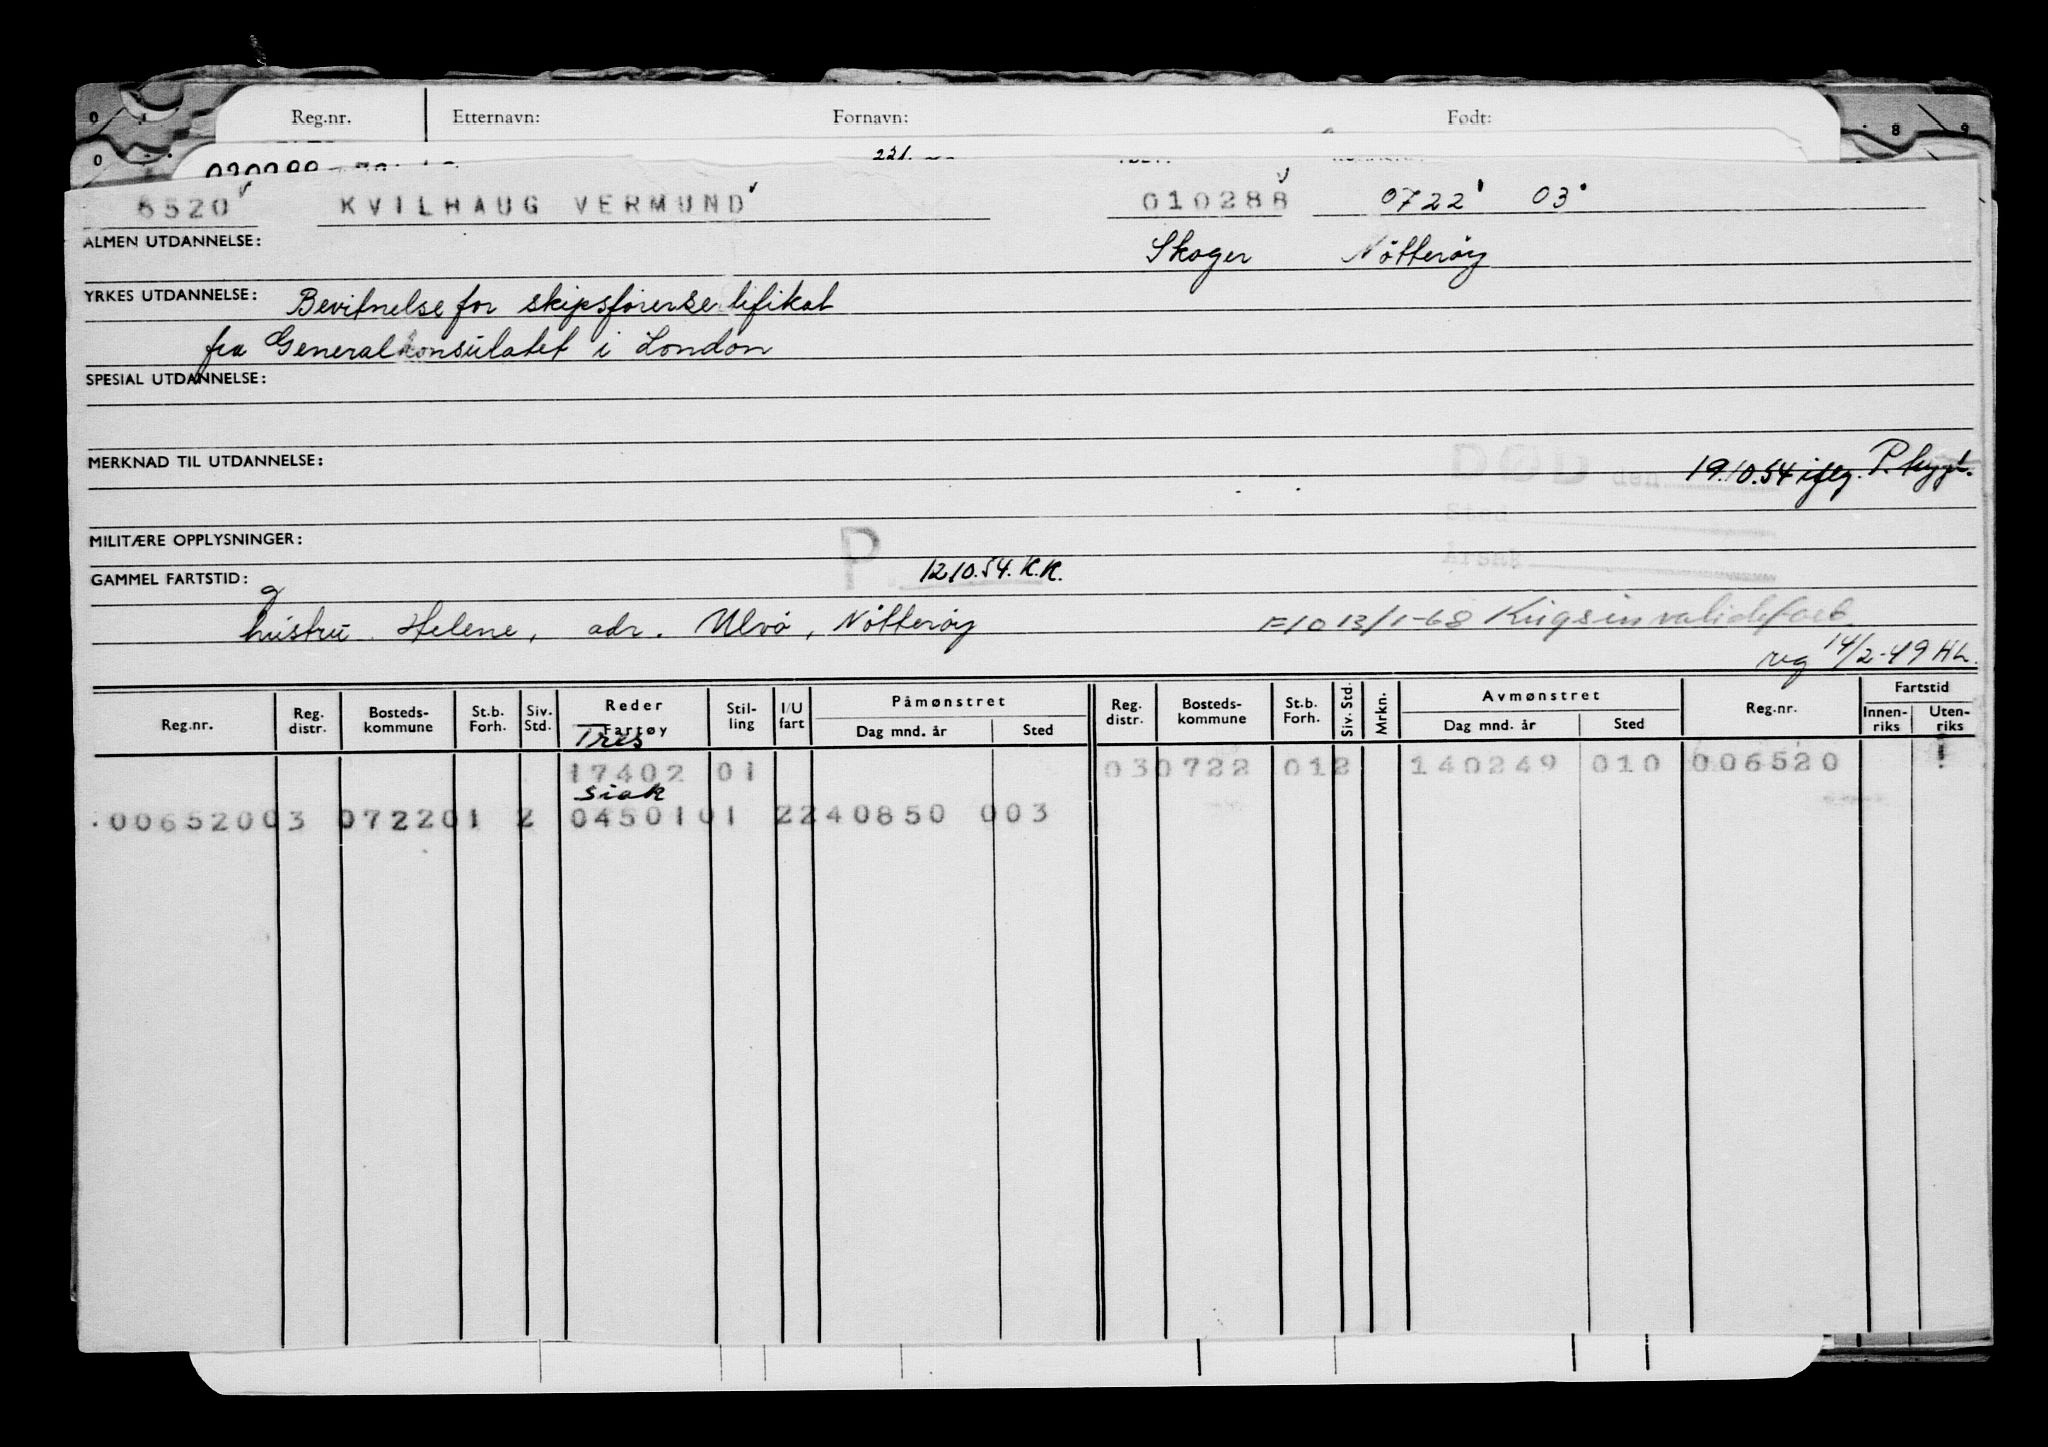 Reg.nr. Etternavn: Fornavn: Født:
6520 KVILHAUG VERMUND 010288 0722 03
ALMEN UTDANNELSE: Skoger Nötteröy
YRKES UTDANNELSE: Bevitnelse for skipsförersertifikat
fra Generalkonsulatet i London
SPESIAL UTDANNELSE:
MERKNAD TIL UTDANNELSE: DØD den 19.10.54 iflg. P. trygt.
Sted
MILITÆRE OPPLYSNINGER: P Årsak
GAMMEL FARTSTID: 12.10.54. K.K.
g
hustru Helene, adr. Ulvö, Nötteröy 13/1-68
reg 14/2-49 HL.
Reg.nr. Reg. distr. Bosteds-kommune St.b. Forh. Siv. Std. Reder Fartøy Stil-ling I/U fart Påmønstret Dag mnd. år Sted Reg. distr. Bosteds-kommune St.b. Forh. Siv. Std. Mrkn. Avmønstret Dag mnd. år Sted Reg.nr. Fartstid Innen-riks Uten-riks
Tres
17402 01 030722 012 140249 010 006520
Siak
00652003 072201 2 0450101 2240850 003